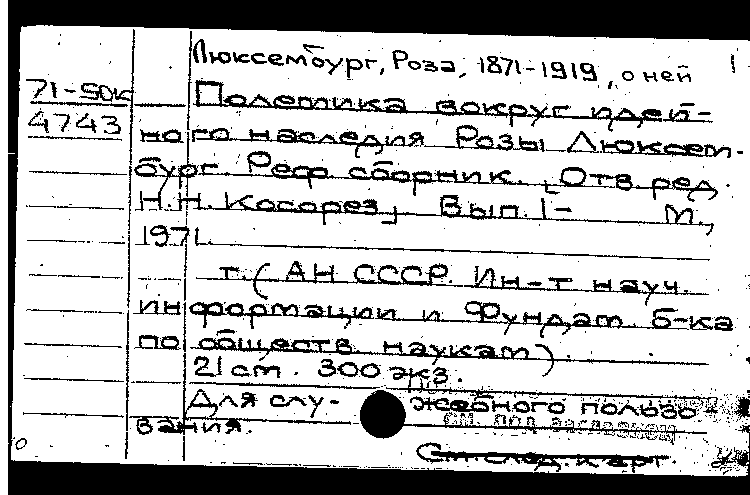 Люксембург, Роза, 1871-1919, о ней
71-50к
4743
Полемика вокруг идей-
ного наследия Розы Люксем-
бург. Реф. сборник. [Отв. ред.
Н.Н. Косорез] Вып. 1- М.,
1971.
т. (АН СССР. Ин-т науч.
информации и Фундам. б-ка
по обществ. наукам).
21 см. 300 экз.
Для слу- жебного пользо
вания.
см. под заглавием
См. след. карт.